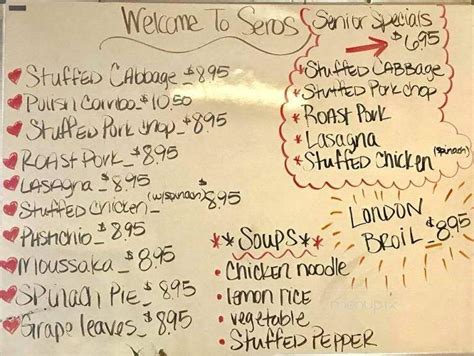 Welcome To Seros
♥ Stuffed Cabbage_$8.95
♥ Polish Combo_$10.50
♥ Stuffed Pork Chop_$8.95
♥ Roast Pork_$8.95
♥ Lasagna_$8.95
♥ Stuffed Chicken_(w/spinach)$8.95
♥ Pastichio_$8.95
♥ Moussaka_$8.95
♥ Spinach Pie_$8.95
♥ Grape leaves_$8.95
Senior Specials
$6.95
* Stuffed CABBage
* Stuffed Pork chop
* Roast Pork
* Lasagna
* Stuffed Chicken (spinach)
LONDON
BROIL_$8.95
** Soups **
• Chicken noodle
• lemon rice
• vegetable
• Stuffed PEPPER
menupix